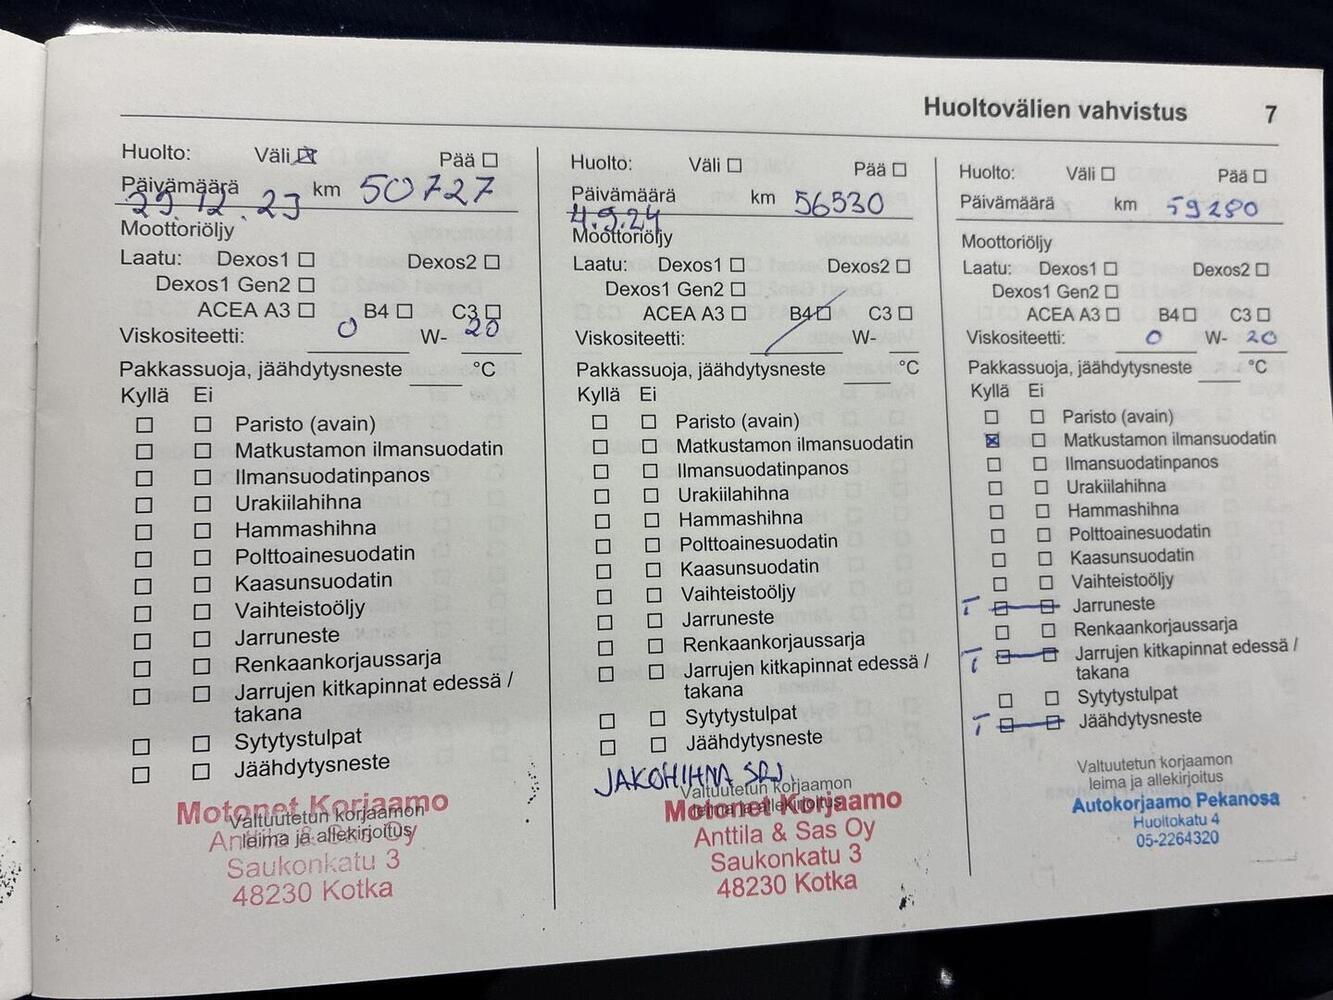 Huoltovälien vahvistus 7
Huolto: Väli Pää
Päivämäärä km 50727
29.12.23
Moottoriöljy
Laatu: Dexos1 Dexos2
Dexos1 Gen2
ACEA A3 B4 C3
Viskositeetti: 0 W- 20
Pakkassuoja, jäähdytysneste °C
Kyllä Ei
Paristo (avain)
Matkustamon ilmansuodatin
Ilmansuodatinpanos
Urakiilahihna
Hammashihna
Polttoainesuodatin
Kaasunsuodatin
Vaihteistoöljy
Jarruneste
Renkaankorjaussarja
Jarrujen kitkapinnat edessä /
takana
Sytytystulpat
Jäähdytysneste
Valtuutetun korjaamon
leima ja allekirjoitus
Motonet Korjaamo
Anttila & Sas Oy
Saukonkatu 3
48230 Kotka
Huolto: Väli Pää
Päivämäärä km 56530
4.9.24
Moottoriöljy
Laatu: Dexos1 Dexos2
Dexos1 Gen2
ACEA A3 B4 C3
Viskositeetti: W-
Pakkassuoja, jäähdytysneste °C
Kyllä Ei
Paristo (avain)
Matkustamon ilmansuodatin
Ilmansuodatinpanos
Urakiilahihna
Hammashihna
Polttoainesuodatin
Kaasunsuodatin
Vaihteistoöljy
Jarruneste
Renkaankorjaussarja
Jarrujen kitkapinnat edessä /
takana
Sytytystulpat
Jäähdytysneste
JAKOHIHNA SRJ.
Valtuutetun korjaamon
leima ja allekirjoitus
Motonet Korjaamo
Anttila & Sas Oy
Saukonkatu 3
48230 Kotka
Huolto: Väli Pää
Päivämäärä km 59280
Moottoriöljy
Laatu: Dexos1 Dexos2
Dexos1 Gen2
ACEA A3 B4 C3
Viskositeetti: 0 W- 20
Pakkassuoja, jäähdytysneste °C
Kyllä Ei
Paristo (avain)
Matkustamon ilmansuodatin
Ilmansuodatinpanos
Urakiilahihna
Hammashihna
Polttoainesuodatin
Kaasunsuodatin
Vaihteistoöljy
T Jarruneste
Renkaankorjaussarja
T Jarrujen kitkapinnat edessä /
takana
Sytytystulpat
T Jäähdytysneste
Valtuutetun korjaamon
leima ja allekirjoitus
Autokorjaamo Pekanosa
Huoltokatu 4
05-2264320